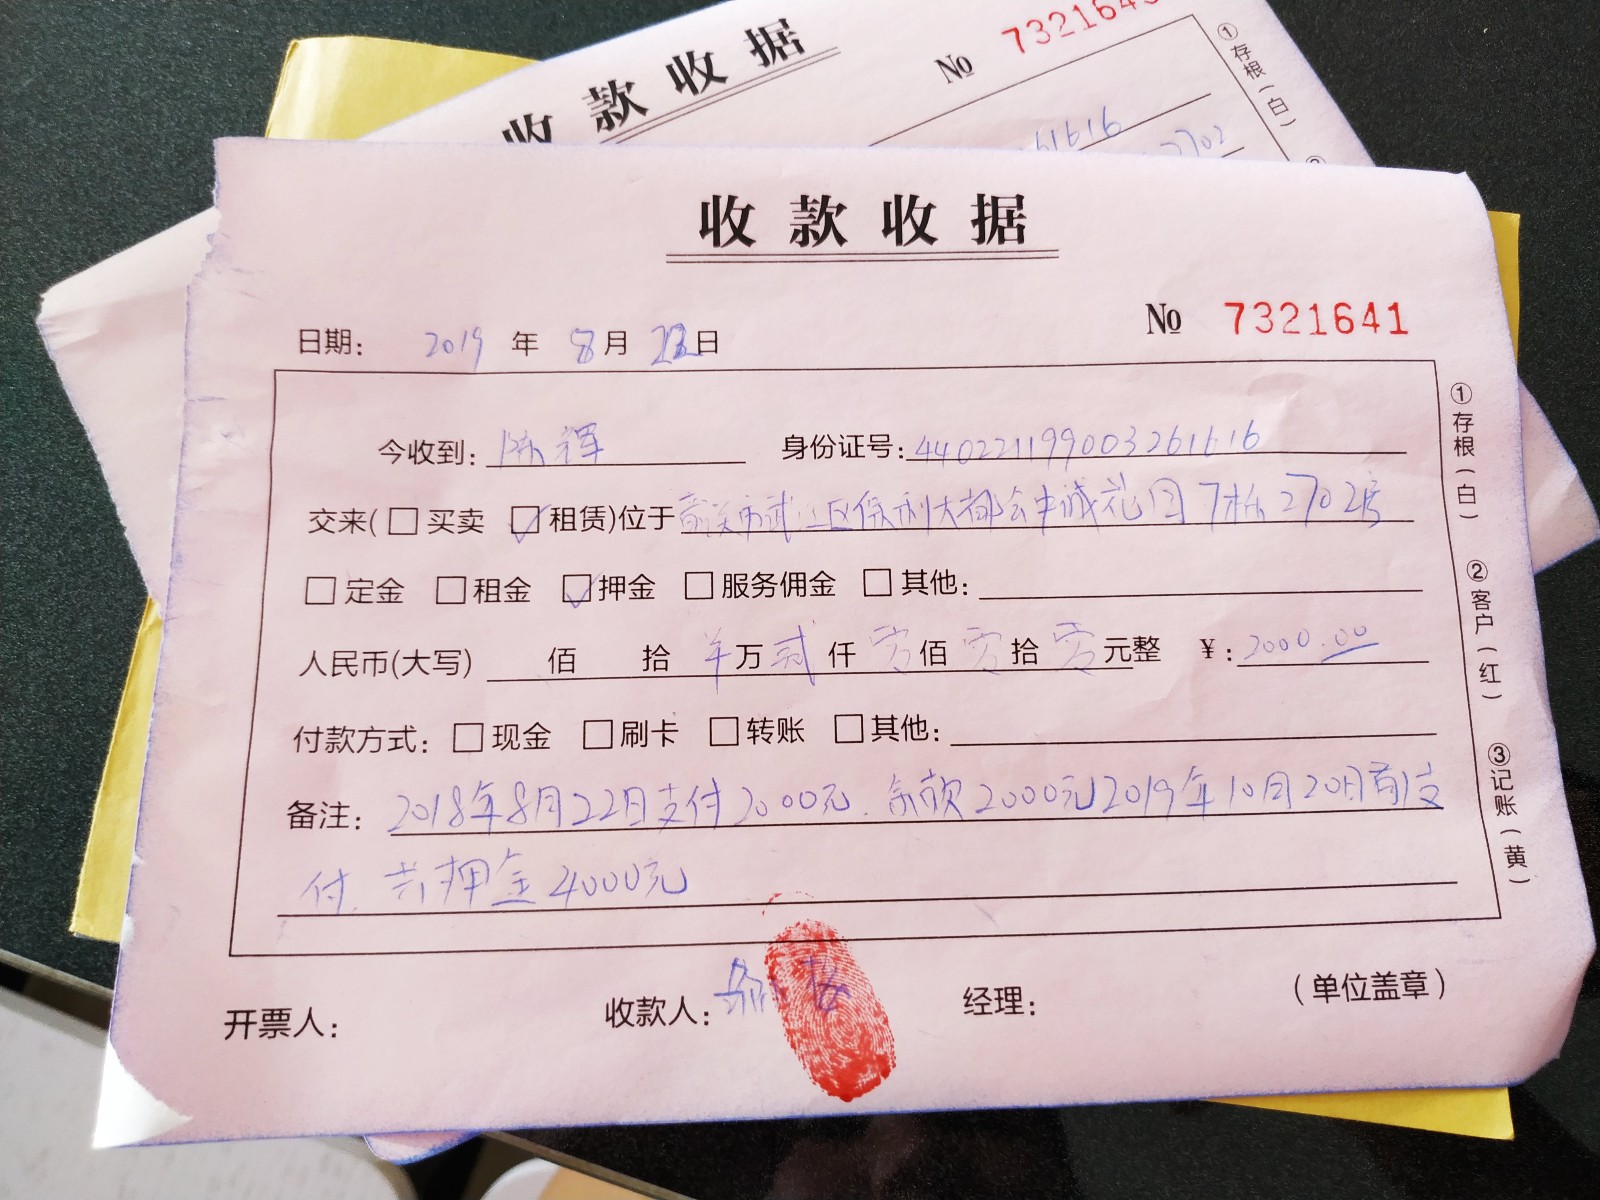 收款收据
№ 732164
①存根(白)
61616
2702
收款收据
№ 7321641
日期: 2019 年 8月 22日
今收到: 陈辉 身份证号: 440221199003261616
交来(□买卖 ☑租赁)位于韶关市武江区保利大都会中诚花园7栋2702房
□定金 □租金 ☑押金 □服务佣金 □其他:
人民币(大写) 佰 拾 万贰仟零佰零拾零元整 ¥: 2000.00
付款方式: □现金 □刷卡 □转账 □其他:
备注: 2018年8月22日支付2000元.余款2000元2019年10月20日前支
付.共押金4000元
开票人: 收款人: 经理: (单位盖章)
①存根(白)
②客户(红)
③记账(黄)